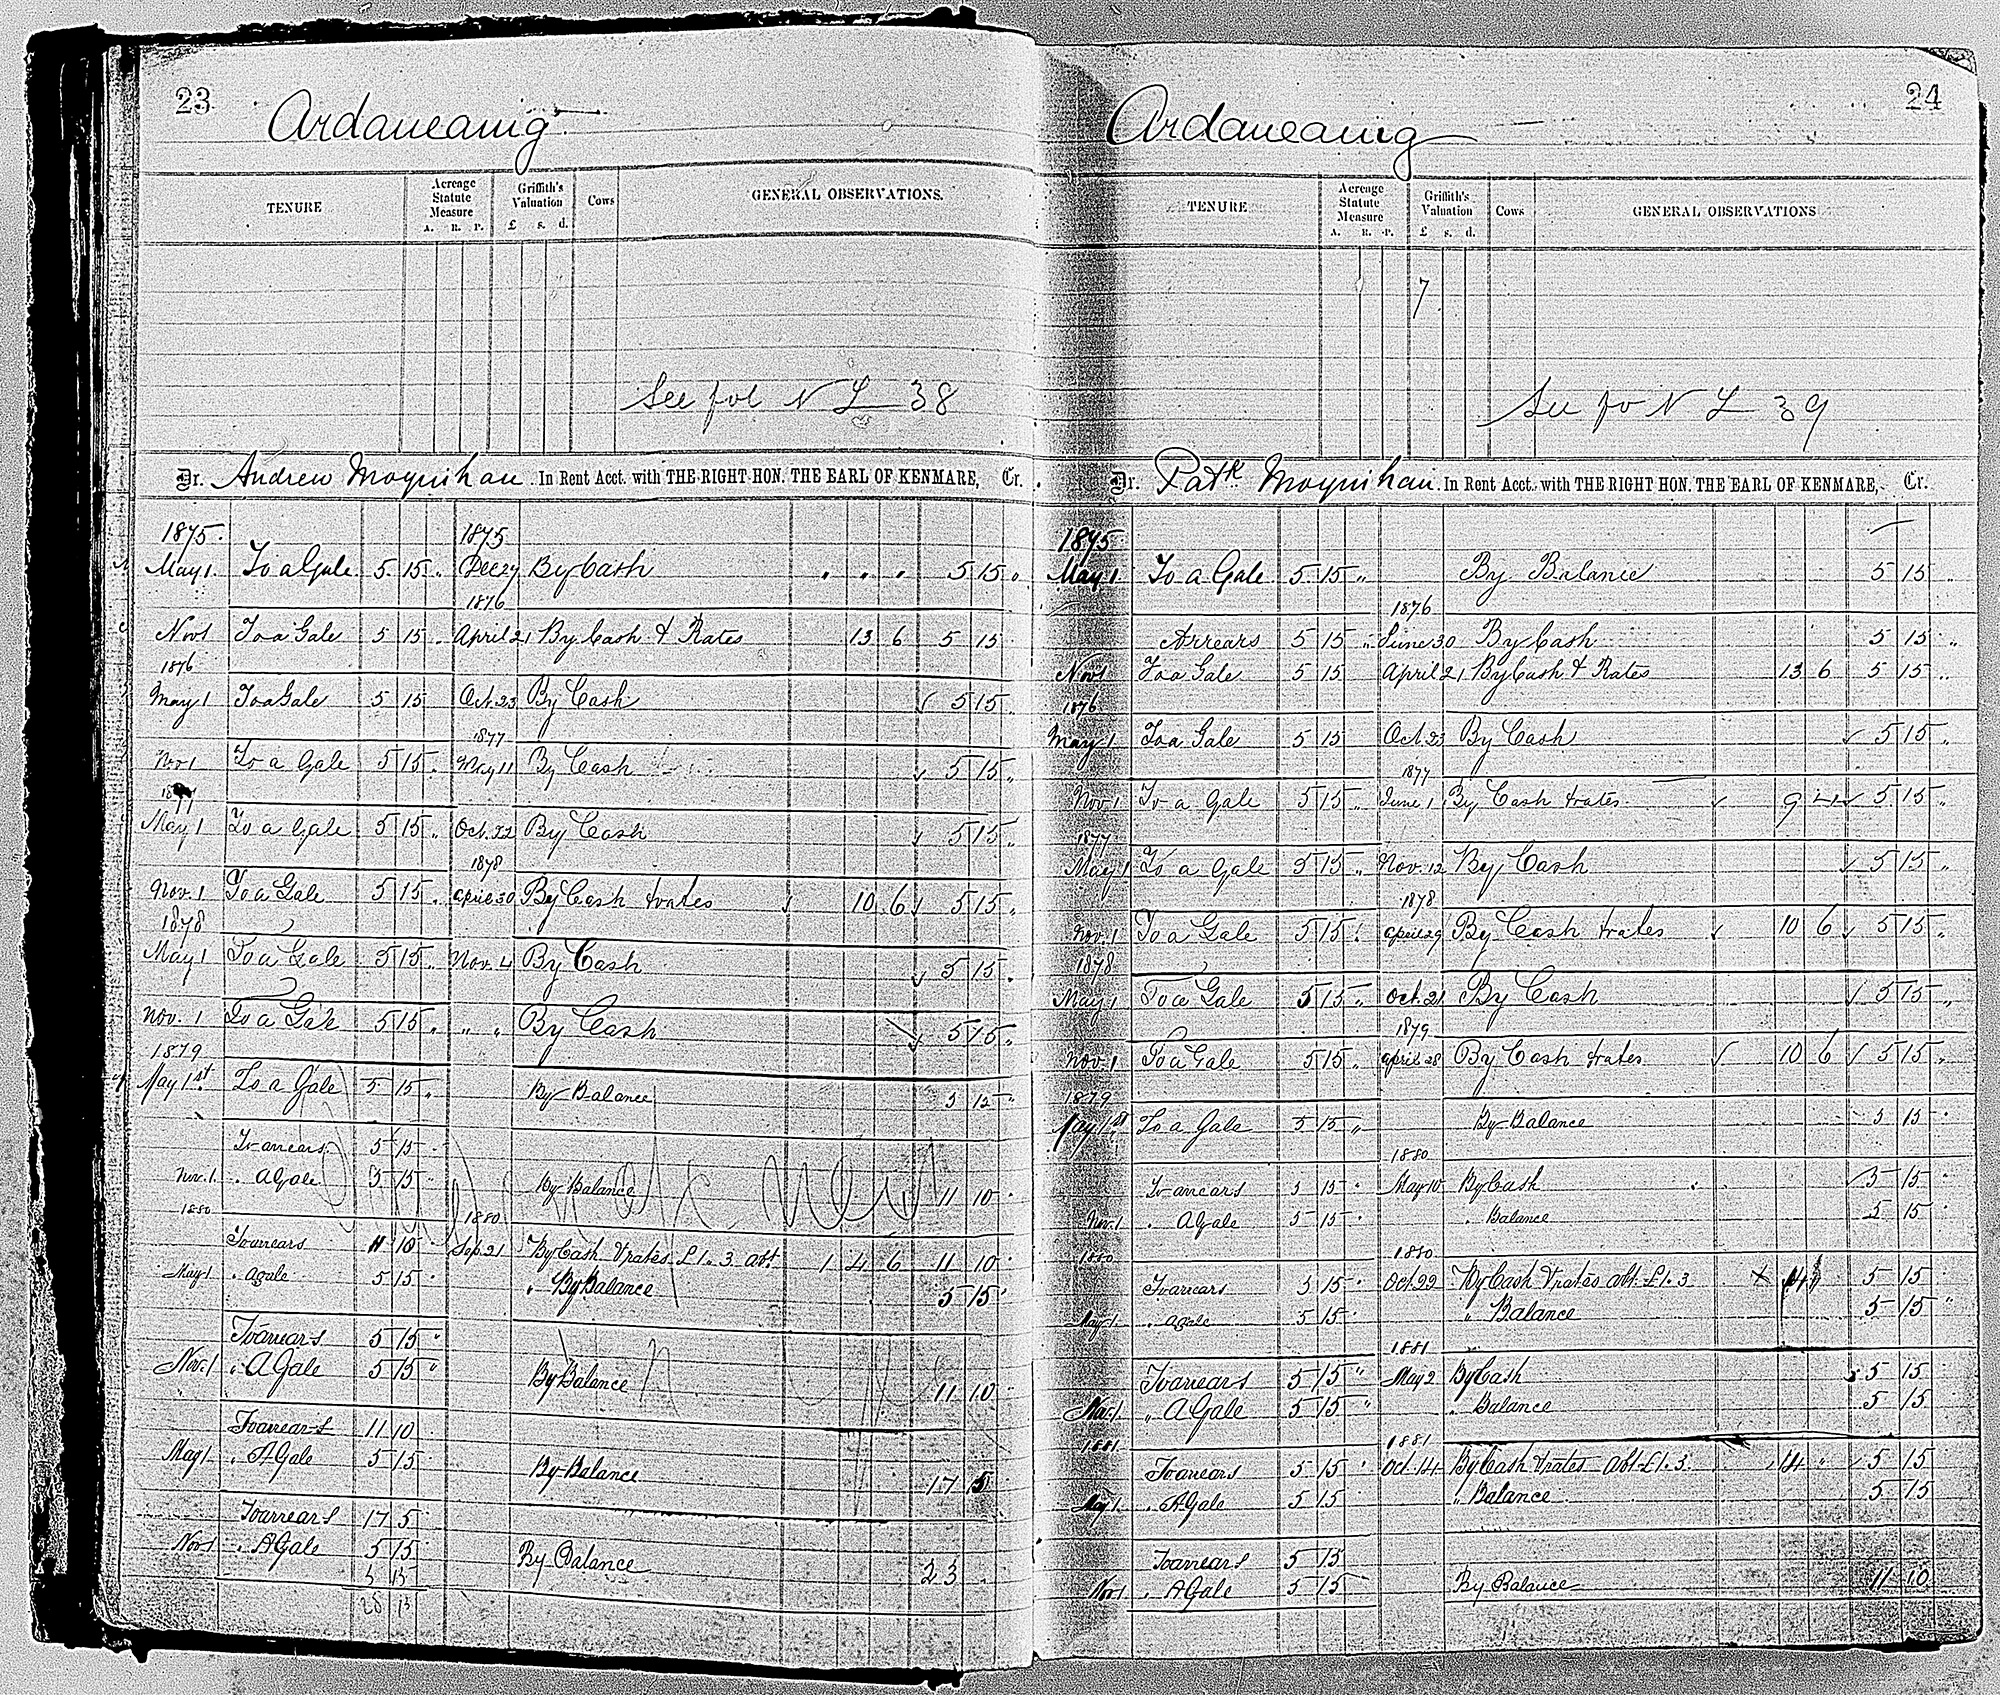 23
Ardaneanig
TENURE
Acreage Statute Measure
A. R. P.
Griffith's Valuation
£ s. d.
Cows
GENERAL OBSERVATIONS.
See fol N L 38
Dr. Andrew Moynihan In Rent Acct. with THE RIGHT HON. THE EARL OF KENMARE, Cr.
1875. 1875
May 1. To a Gale 5 15 „ Dec 27 By Cash „ „ „ 5 15 „
1876
Nov 1 To a Gale 5 15 „ April 21 By Cash & Rates 13 6 5 15
1876
May 1 To a Gale 5 15 Oct. 23 By Cash 5 15 „
1877
Nov 1 To a Gale 5 15 „ May 11 By Cash 5 15 „
1877
May 1 To a Gale 5 15 „ Oct. 22 By Cash 5 15 „
1878
Nov. 1 To a Gale 5 15 „ April 30 By Cash & rates 10 6 5 15 „
1878
May 1 To a Gale 5 15 „ Nov. 4 By Cash 5 15 „
Nov. 1 To a Gale 5 15 „ „ „ By Cash 5 15 „
1879
May 1st To a Gale 5 15 „ By Balance 5 15 „
To arrears 5 15 „
Nov. 1 „ A Gale 5 15 „ By Balance 11 10 „
1880 1880
To arrears 11 10 „ Sep. 21 By Cash & rates £1.3 abt. 1 4 6 11 10 „
May 1 „ a gale 5 15 „ „ By Balance 5 15 „
To arrears 5 15 „
Nov. 1 „ A Gale 5 15 „ By Balance 11 10 „
To arrears 11 10
May 1 „ A Gale 5 15 By Balance 17 5
To arrears 17 5
Nov 1 „ A Gale 5 15 By Balance 23 „
5 15
28 15
24
Ardaneanig
TENURE
Acreage Statute Measure
A. R. P.
Griffith's Valuation
£ s. d.
Cows
GENERAL OBSERVATIONS
7
See fo N L 39
Dr. Patk Moynihan In Rent Acct. with THE RIGHT HON. THE EARL OF KENMARE, Cr.
1875
May 1. To a Gale 5 15 „ By Balance 5 15 „
1876
Arrears 5 15 „ June 30 By Cash 5 15 „
Nov 1 To a Gale 5 15 April 21 By Cash & Rates 13 6 5 15 „
1876
May 1 To a Gale 5 15 Oct. 23 By Cash 5 15 „
1877
Nov 1. To a Gale 5 15 „ June 1 By Cash & rates 9 4 5 15 „
1877
May 1 To a Gale 5 15 „ Nov. 12 By Cash 5 15 „
1878
Nov. 1 To a Gale 5 15 „ April 29 By Cash & rates 10 6 5 15 „
1878
May 1 To a Gale 5 15 „ Oct. 21 By Cash 5 15 „
1879
Nov. 1 To a Gale 5 15 „ April 28 By Cash & rates 10 6 5 15 „
1879
May 1st To a Gale 5 15 „ By Balance 5 15 „
1880
To arrears 5 15 „ May 10 By Cash 5 15 „
Nov. 1 „ A Gale 5 15 „ „ Balance 5 15 „
1880 1880
To arrears 5 15 „ Oct. 22 By Cash & rates abt. £1.3 5 15 „
May 1. „ a gale 5 15 „ „ Balance 5 15 „
1881
To arrears 5 15 „ May 2 By Cash 5 15
Nov. 1 „ A Gale 5 15 „ „ Balance 5 15
1881 1881
To arrears 5 15 „ Oct. 14 By Cash & rates abt £1.3. 14 „ 5 15
May 1 „ A Gale 5 15 „ Balance 5 15
To arrears 5 15
Nov 1 „ A Gale 5 15 By Balance 11 10